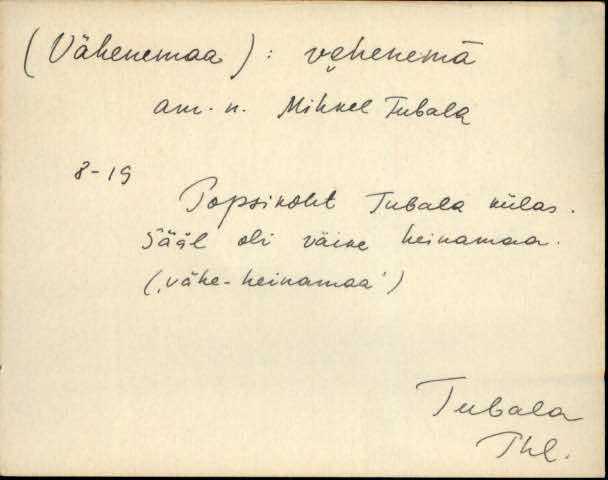 (Vähenemaa): vehenemā
am. n. Mihkel Tubala
8-19
Popsikoht Tubala külas.
Sääl oli väike heinamaa.
(,vähe-heinamaa')
Tubala
Phl.